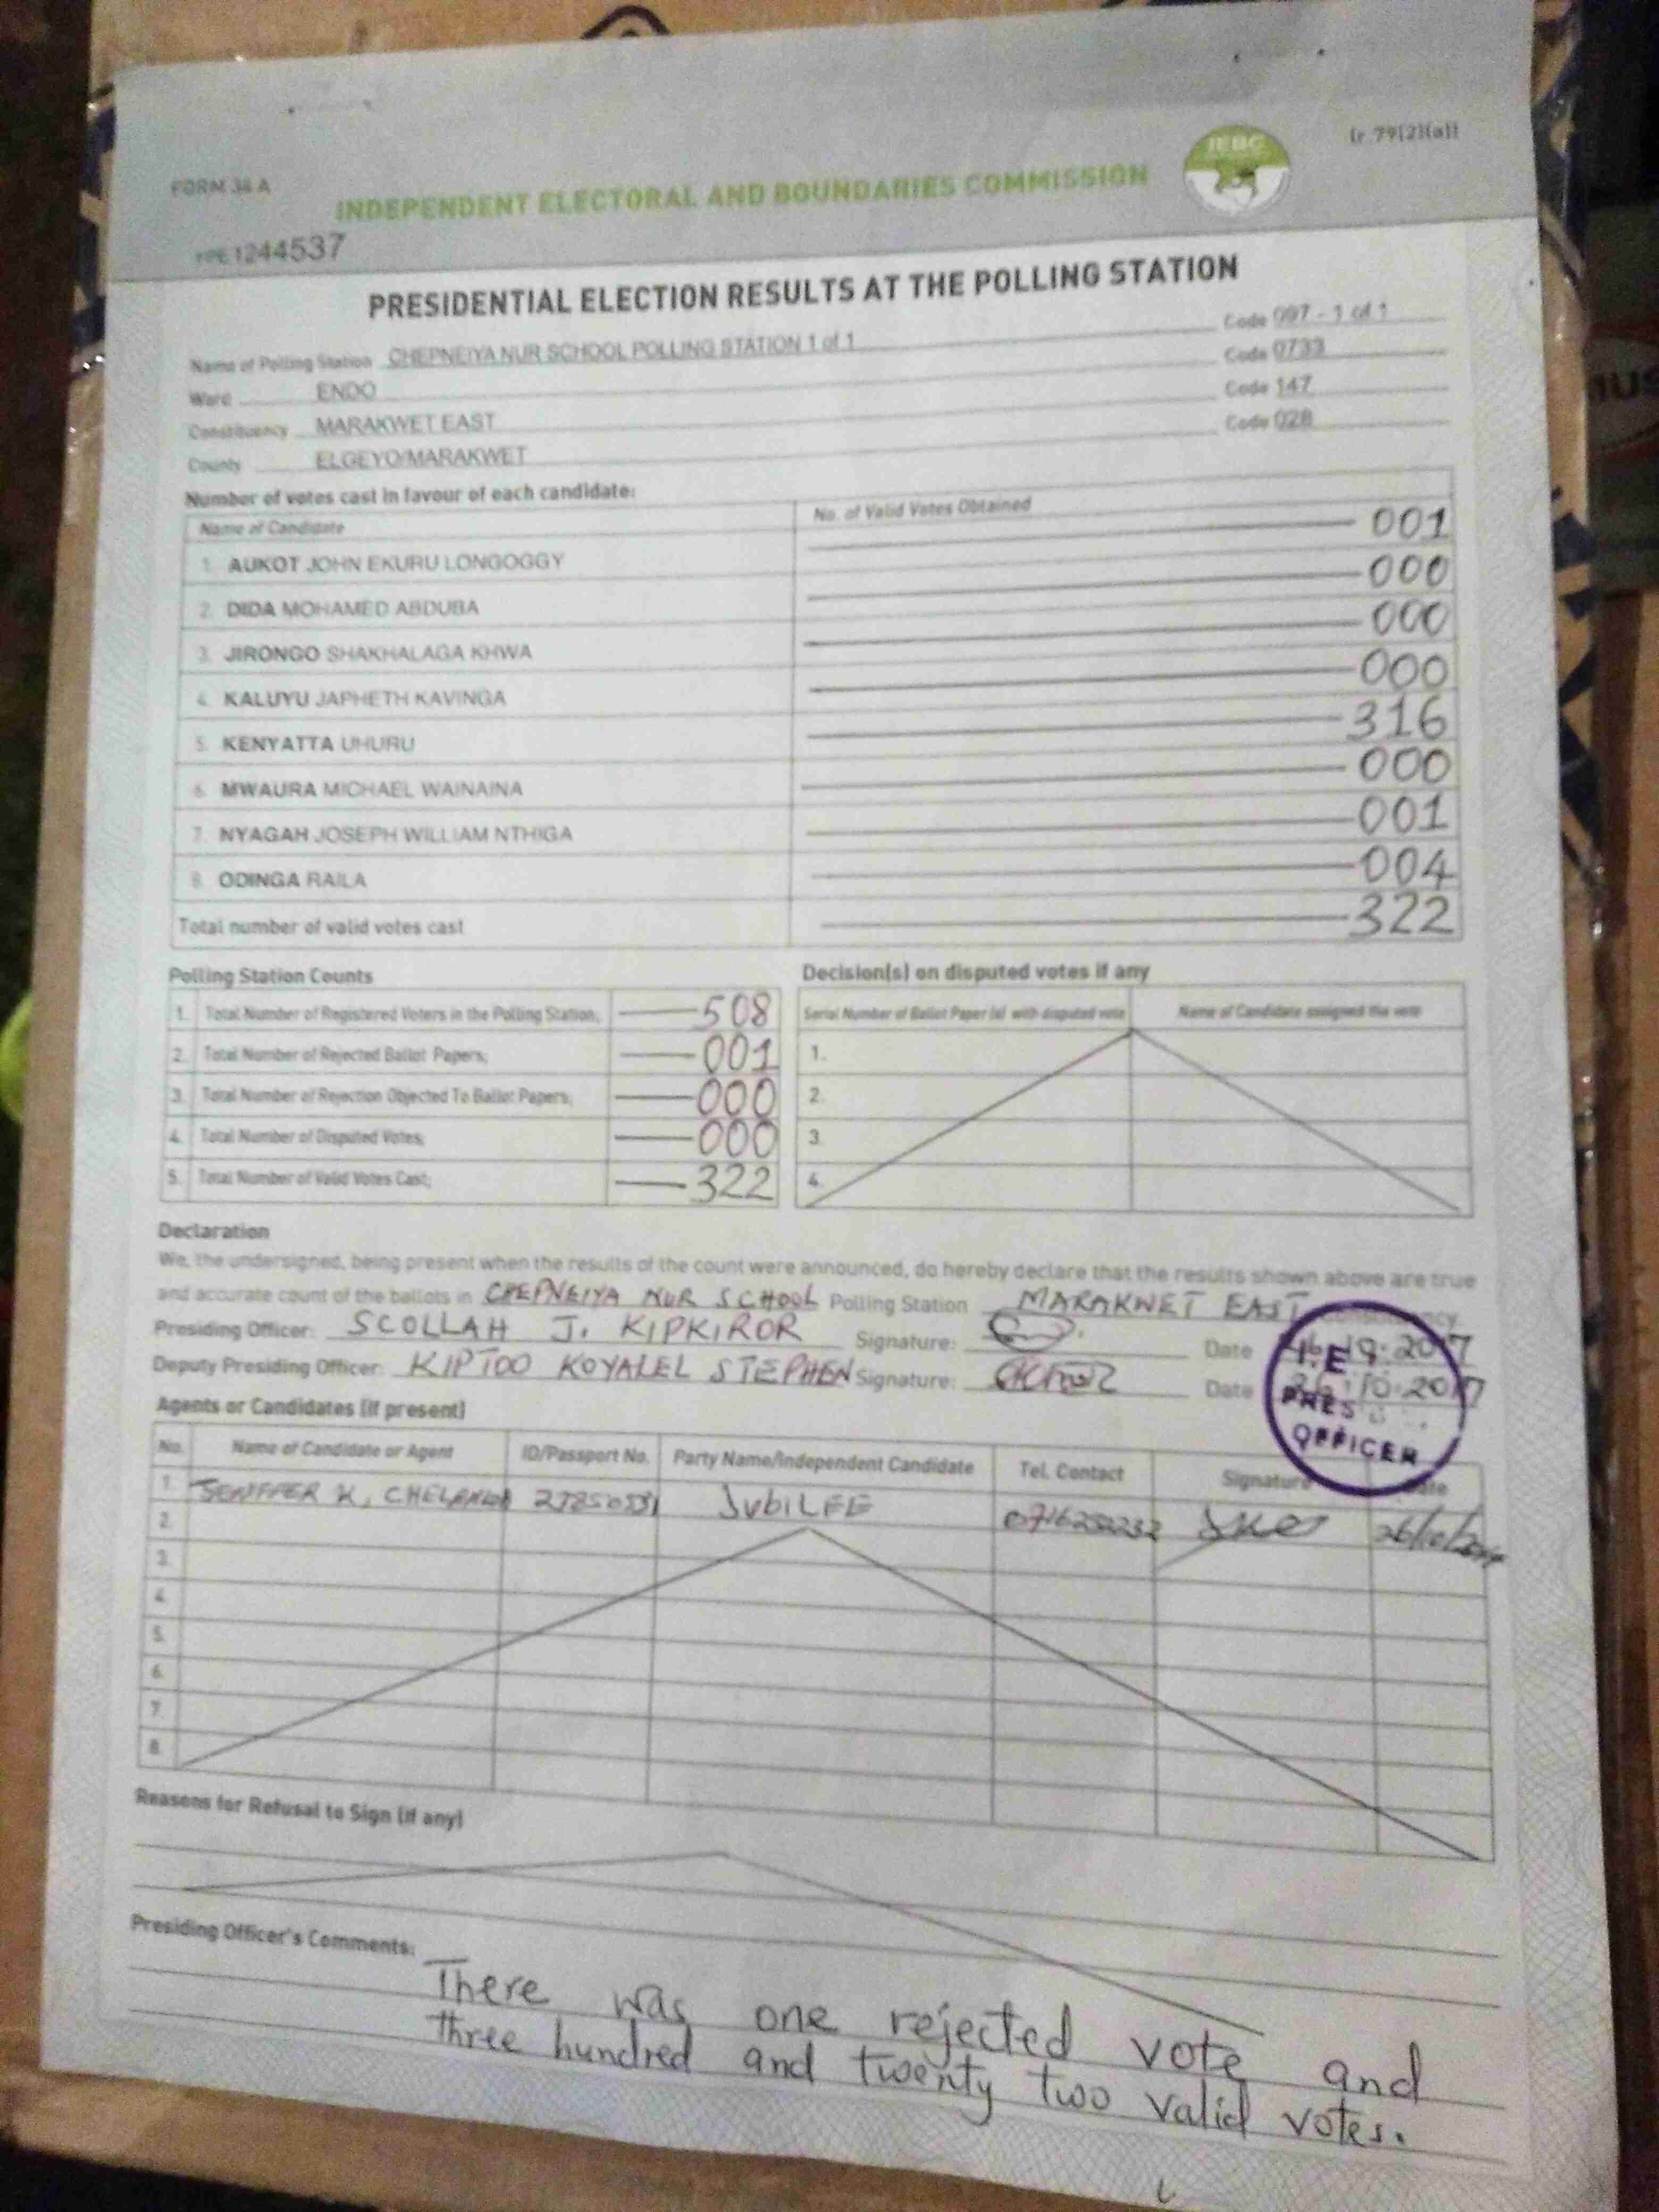 (r 79(2)(a))
IEBC
FORM 34 A
INDEPENDENT ELECTORAL AND BOUNDARIES COMMISSION
1244537
PRESIDENTIAL ELECTION RESULTS AT THE POLLING STATION
Name of Polling Station CHEPNEIYA NUR SCHOOL POLLING STATION 1 of 1 Code 097 - 1 of 1
Ward ENDO Code 0733
Constituency MARAKWET EAST Code 147
County ELGEYO/MARAKWET Code 028
Number of votes cast in favour of each candidate:
Name of Candidate No. of Valid Votes Obtained
1. AUKOT JOHN EKURU LONGOGGY 001
2. DIDA MOHAMED ABDUBA 000
3. JIRONGO SHAKHALAGA KHWA 000
4. KALUYU JAPHETH KAVINGA 000
5. KENYATTA UHURU 316
6. MWAURA MICHAEL WAINAINA 000
7. NYAGAH JOSEPH WILLIAM NTHIGA 001
8. ODINGA RAILA 004
Total number of valid votes cast 322
Polling Station Counts
1. Total Number of Registered Voters in the Polling Station; 508
2. Total Number of Rejected Ballot Papers; 001
3. Total Number of Rejection Objected To Ballot Papers; 000
4. Total Number of Disputed Votes; 000
5. Total Number of Valid Votes Cast; 322
Decision(s) on disputed votes if any
Serial Number of Ballot Paper (s) with disputed vote Name of Candidate assigned the vote
1.
2.
3.
4.
Declaration
We, the undersigned, being present when the results of the count were announced, do hereby declare that the results shown above are true
and accurate count of the ballots in CHEPNEIYA NUR SCHOOL Polling Station MARAKWET EAST
Presiding Officer: SCOLLAH J. KIPKIROR Signature: Date
Deputy Presiding Officer: KIPTOO KOYALEL STEPHEN Signature: Date 26.10.2017
PRES
OFFICER
Agents or Candidates (if present)
No. Name of Candidate or Agent ID/Passport No. Party Name/Independent Candidate Tel. Contact Signature Date
1. JUBILEE 26/10/2017
2.
3.
4.
5.
6.
7.
8.
Reasons for Refusal to Sign (if any)
Presiding Officer's Comments:
There was one rejected vote and
three hundred and twenty two valid votes.